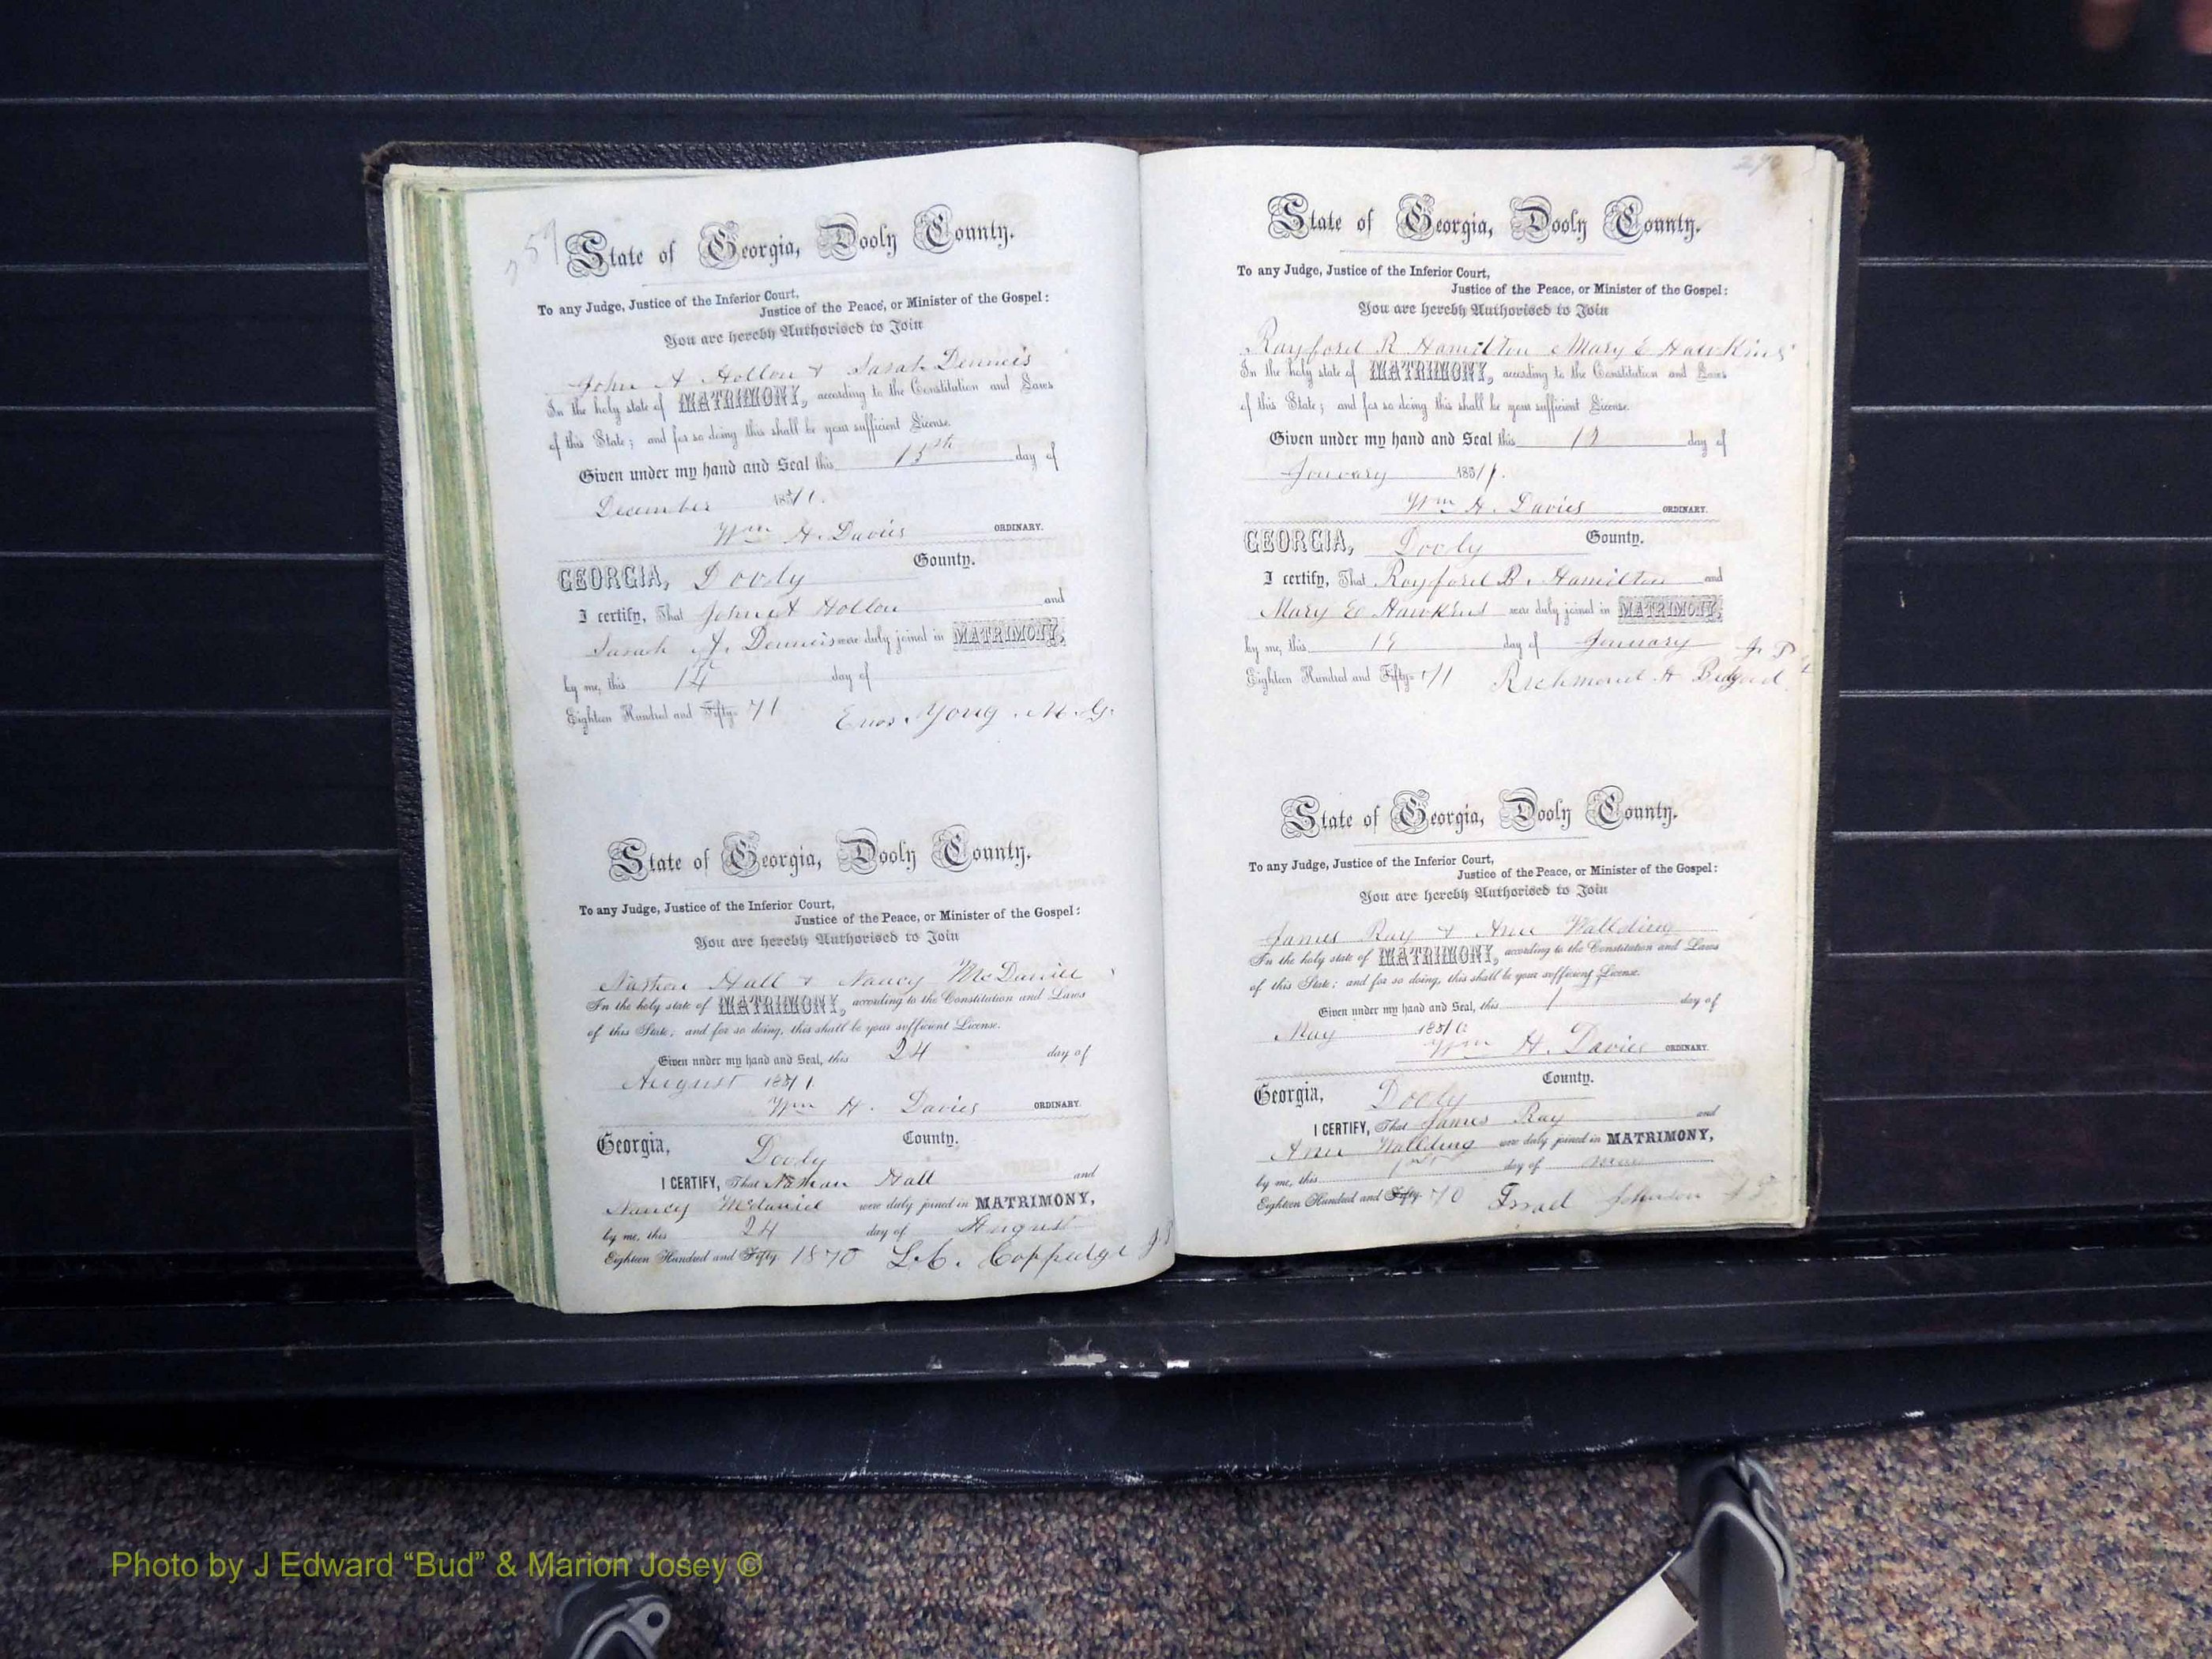 259
State of Georgia, Dooly County.
To any Judge, Justice of the Inferior Court,
Justice of the Peace, or Minister of the Gospel:
You are hereby Authorised to Join
John A Hollon & Sarah Dennis
In the holy state of MATRIMONY, according to the Constitution and Laws
of this State; and for so doing this shall be your sufficient License.
Given under my hand and Seal this 15th day of
December 1871.
Wm H. Davies ORDINARY.
GEORGIA, Dooly County.
I certify, That John A Hollon and
Sarah A. Dennis were duly joined in MATRIMONY,
by me, this 14 day of
Eighteen Hundred and Fifty- 71 Enos Yong. M. G.
State of Georgia, Dooly County.
To any Judge, Justice of the Inferior Court,
Justice of the Peace, or Minister of the Gospel:
You are hereby Authorised to Join
Nathan Hall & Nancy McDaniel
In the holy state of MATRIMONY, according to the Constitution and Laws
of this State; and for so doing, this shall be your sufficient License.
Given under my hand and Seal, this 24 day of
August 1871.
Wm H. Davies ORDINARY.
Georgia, Dooly County.
I CERTIFY, That Nathan Hall and
Nancy Mcdaniel were duly joined in MATRIMONY,
by me, this 24 day of August
Eighteen Hundred and Fifty- 1870 L.C. Coppedge J.P
State of Georgia, Dooly County.
To any Judge, Justice of the Inferior Court,
Justice of the Peace, or Minister of the Gospel:
You are hereby Authorised to Join
Rayford R Hamilton Mary E Hawkins
In the holy state of MATRIMONY, according to the Constitution and Laws
of this State; and for so doing this shall be your sufficient License.
Given under my hand and Seal this day of
January 1871.
Wm H. Davies ORDINARY.
GEORGIA, Dooly County.
I certify, That Rayford B. Hamilton and
Mary E Hawkins were duly joined in MATRIMONY,
by me, this 19 day of January J. P
Eighteen Hundred and Fifty- 71 Richmond H
State of Georgia, Dooly County.
To any Judge, Justice of the Inferior Court,
Justice of the Peace, or Minister of the Gospel:
You are hereby Authorised to Join
James Ray & Ann Wallding
In the holy state of MATRIMONY, according to the Constitution and Laws
of this State; and for so doing, this shall be your sufficient License.
Given under my hand and Seal, this 1 day of
May 1870
Wm H. Davies ORDINARY.
Georgia, Dooly County.
I CERTIFY, That James Ray and
Ann Wallding were duly joined in MATRIMONY,
by me, this 1st day of
Eighteen Hundred and Fifty- 70 Israel Johnson J P
Photo by J Edward “Bud” & Marion Josey ©